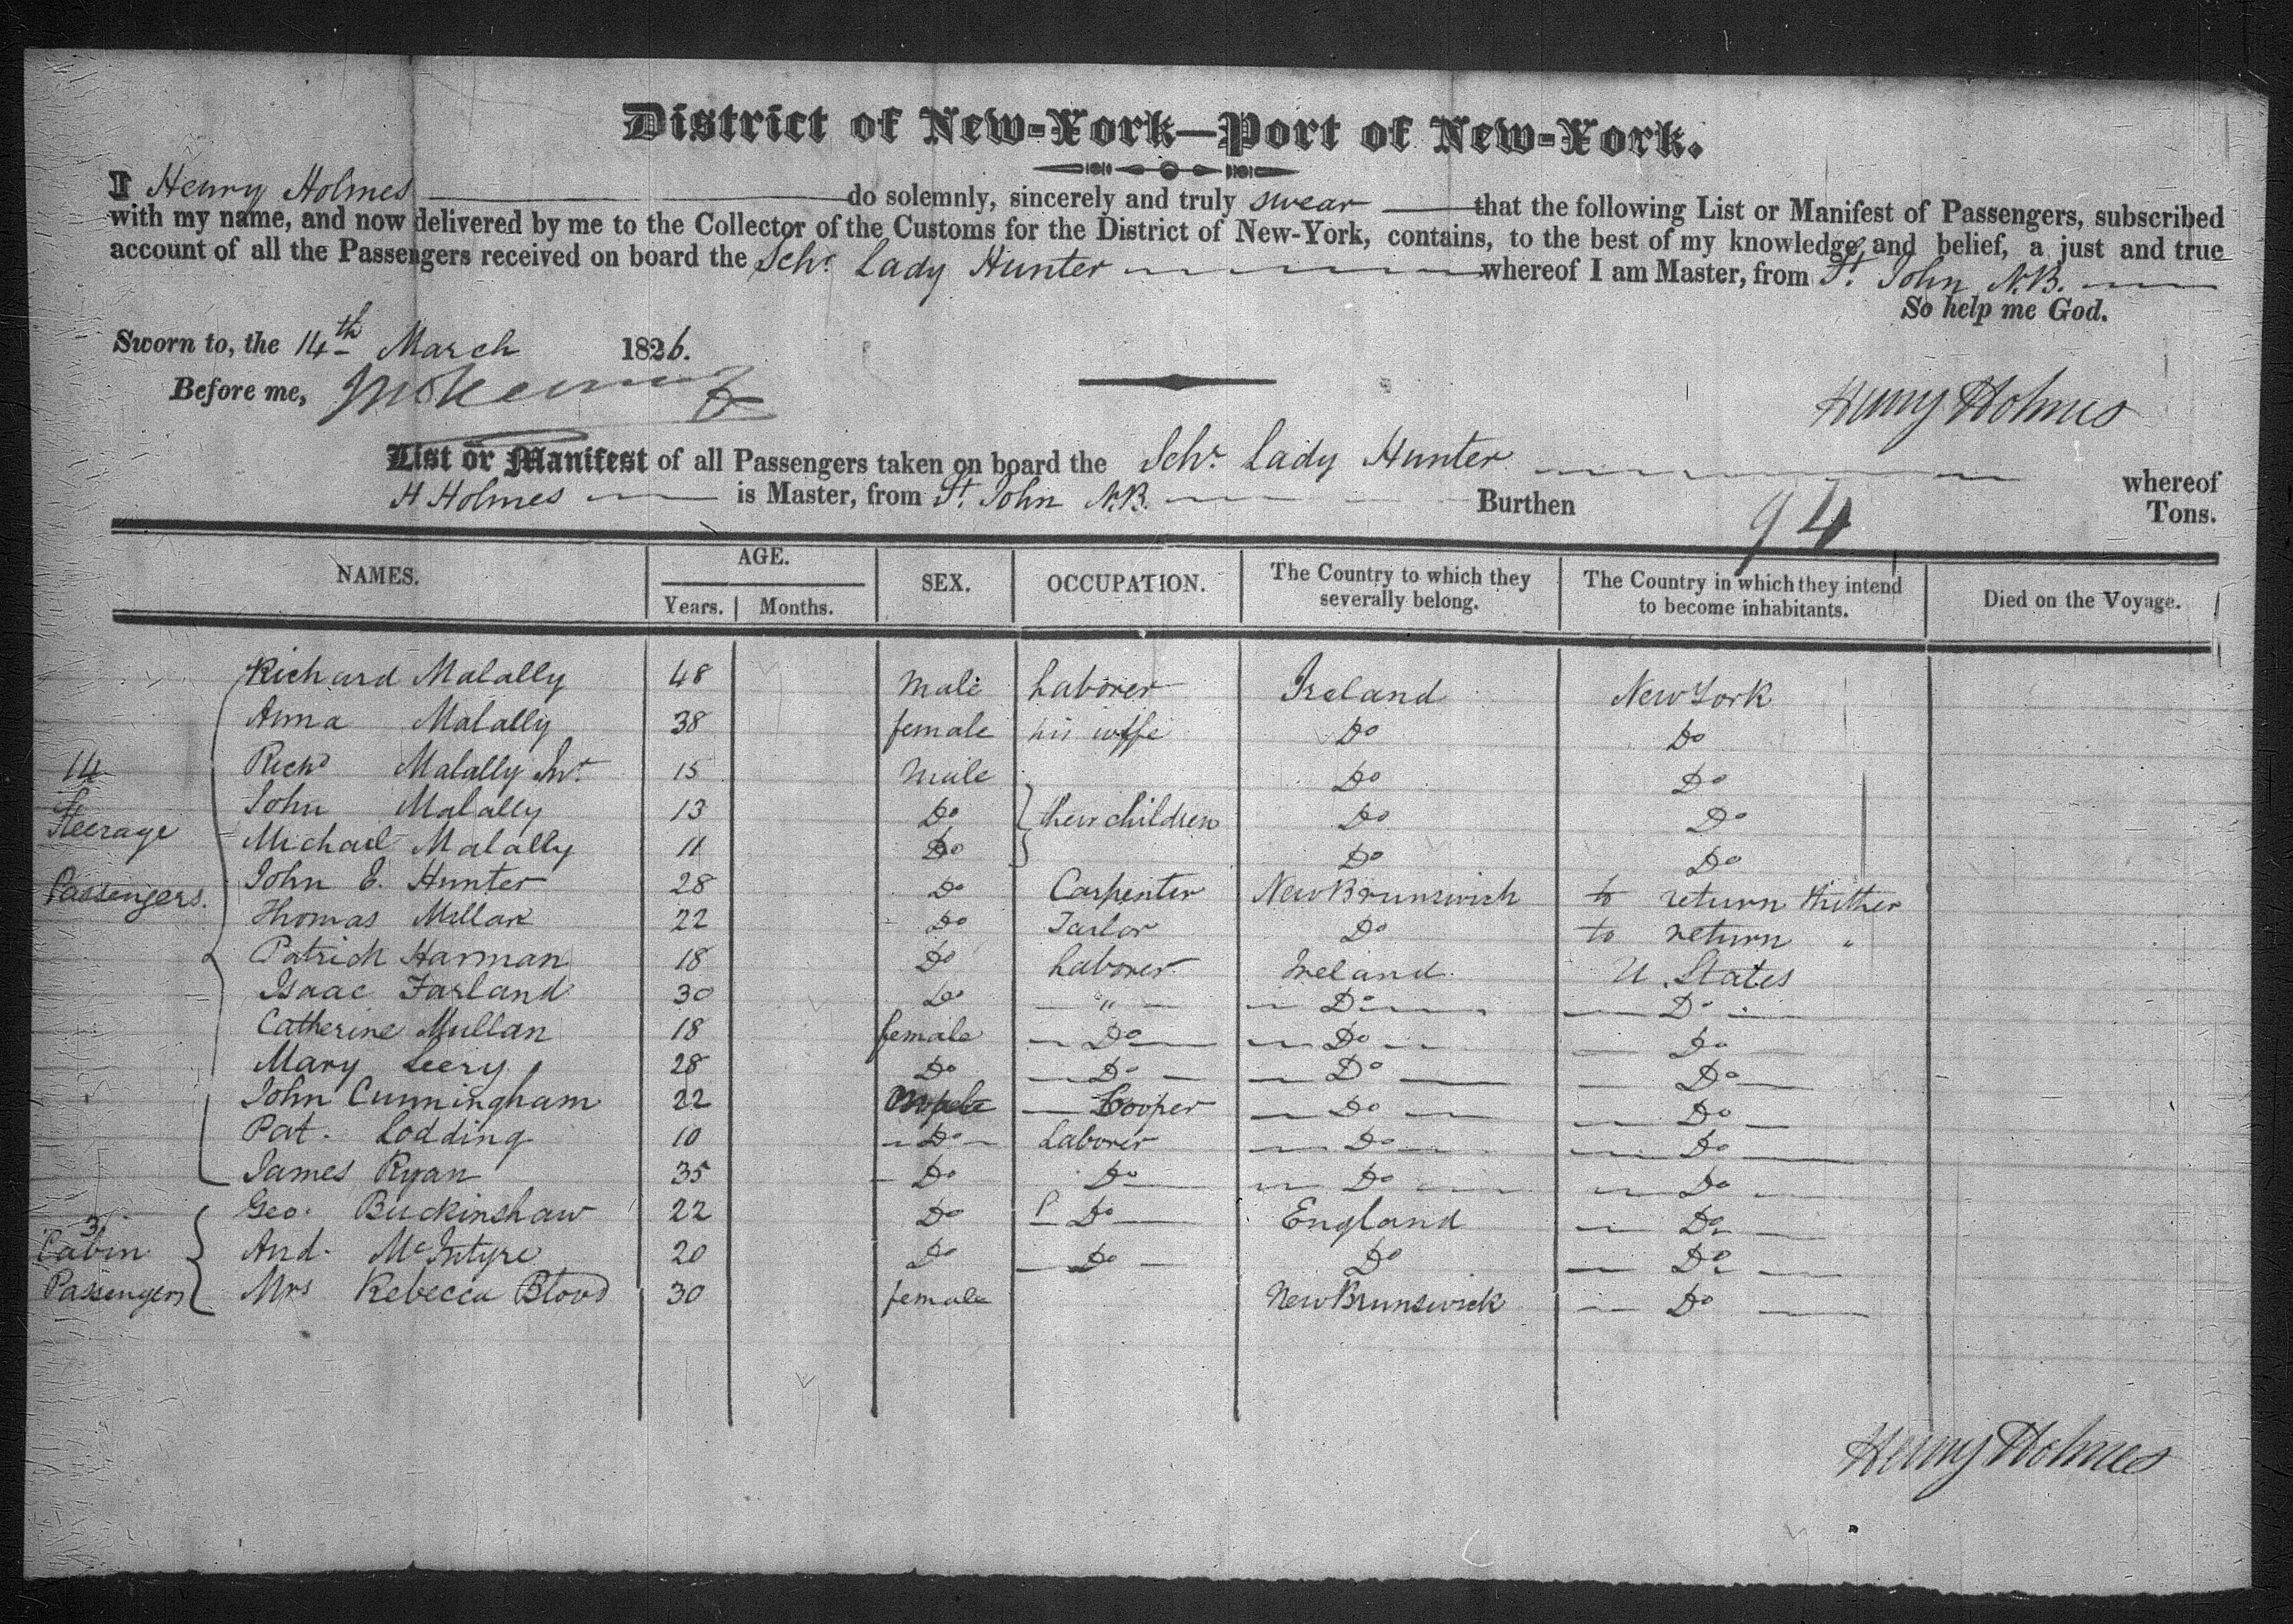 District of New-York—Port of New-York.
I Henry Holmes do solemnly, sincerely and truly swear that the following List or Manifest of Passengers, subscribed
with my name, and now delivered by me to the Collector of the Customs for the District of New-York, contains, to the best of my knowledge and belief, a just and true
account of all the Passengers received on board the Schr Lady Hunter whereof I am Master, from St. John N.B.
So help me God.
Sworn to, the 14th March 1826.
Before me,
Henry Holmes
List or Manifest of all Passengers taken on board the Schr Lady Hunter whereof
H Holmes is Master, from St. John N.B. Burthen 94 Tons.
NAMES. AGE. Years. Months. SEX. OCCUPATION. The Country to which they severally belong. The Country in which they intend to become inhabitants. Died on the Voyage.
Richard Malally 48 Male Laborer Ireland New York
Anna Malally 38 female his wife Do Do
14 Richd Malally Junr 15 Male Do Do
John Malally 13 Do their children Do Do
Steerage Michael Malally 11 Do Do Do
Passengers. John E. Hunter 28 Do Carpenter New Brunswick to return thither
Thomas Millar 22 Do Tailor Do to return "
Patrick Harman 18 Do Laborer Ireland U. States
Isaac Farland 30 Do " Do Do
Catherine Mullan 18 female Do Do Do
Mary Leery 28 Do Do Do Do
John Cunningham 22 Male Cooper Do Do
Pat. Lodding 10 Do Laborer Do Do
James Ryan 35 Do Do Do Do
3 Geo. Buckinshaw 22 Do Do England Do
Cabin And. McIntyre 20 Do Do Do Do
Passengers Mrs Rebecca Blood 30 female New Brunswick Do
Henry Holmes